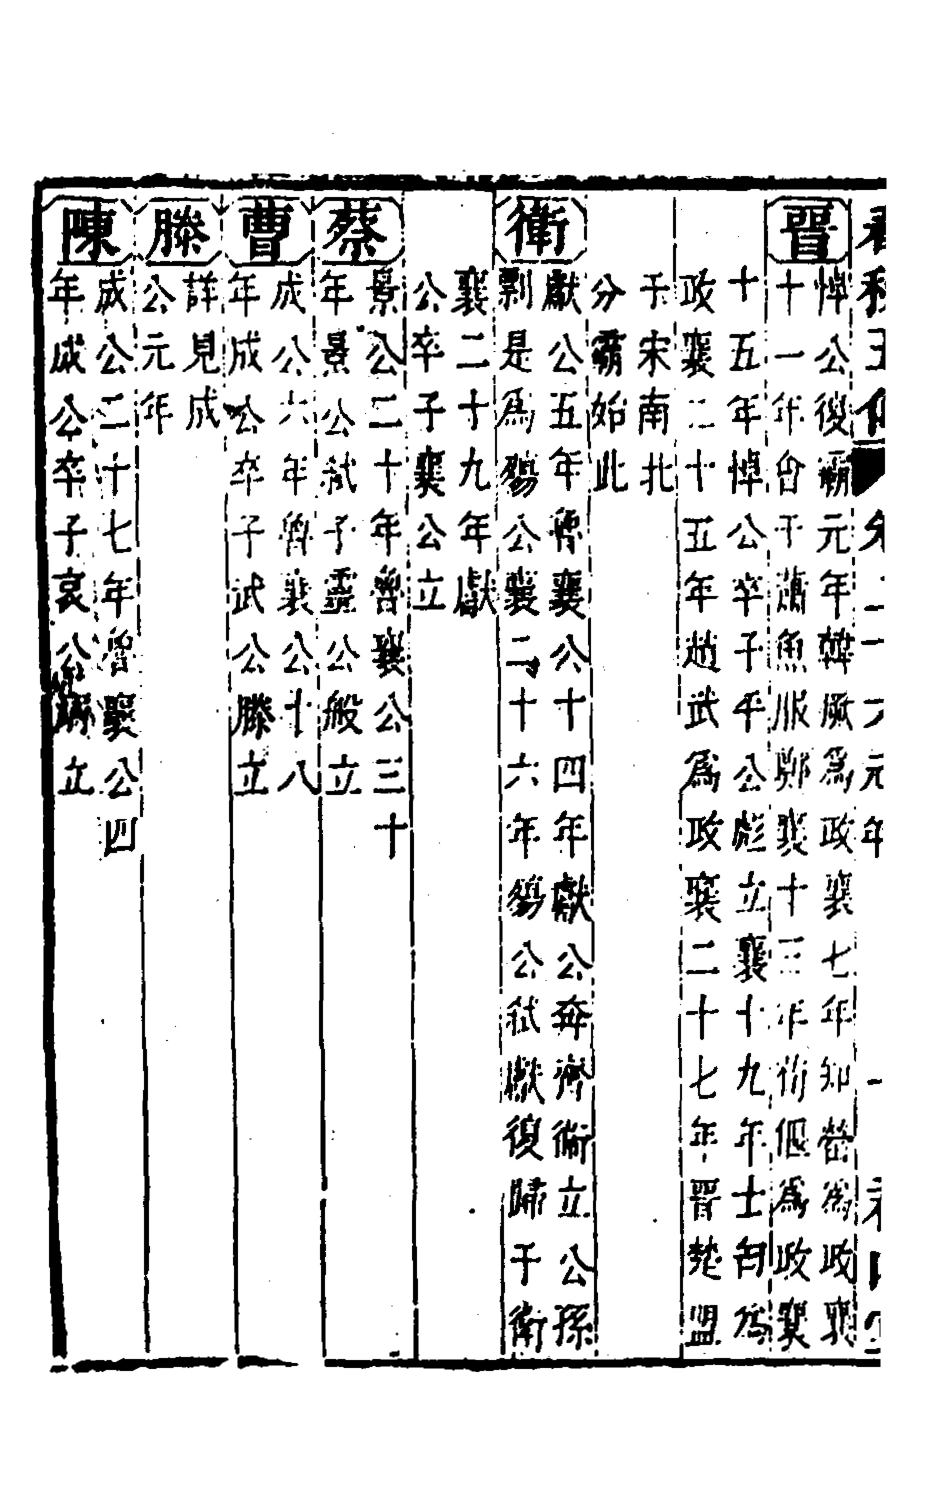 元年
晉
悼公復霸元年韓厥爲政襄七年知罃爲政襄
十一年會于蕭魚服鄭襄十三年荀偃爲政襄
十五年悼公卒子平公彪立襄十九年士匄爲
政襄二十五年趙武爲政襄二十七年晉楚盟
于宋南北
分霸始此
衛
獻公五年魯襄公十四年獻公奔齊衛立公孫
剽是爲殤公襄二十六年殤公弒獻復歸于衛
襄二十九年獻
公卒子襄公立
蔡
景公二十年魯襄公三十
年景公弒子靈公般立
曹
成公六年魯襄公十八
年成公卒子武公滕立
滕
詳見成
公元年
陳
成公二十七年魯襄公四
年成公卒子哀公立